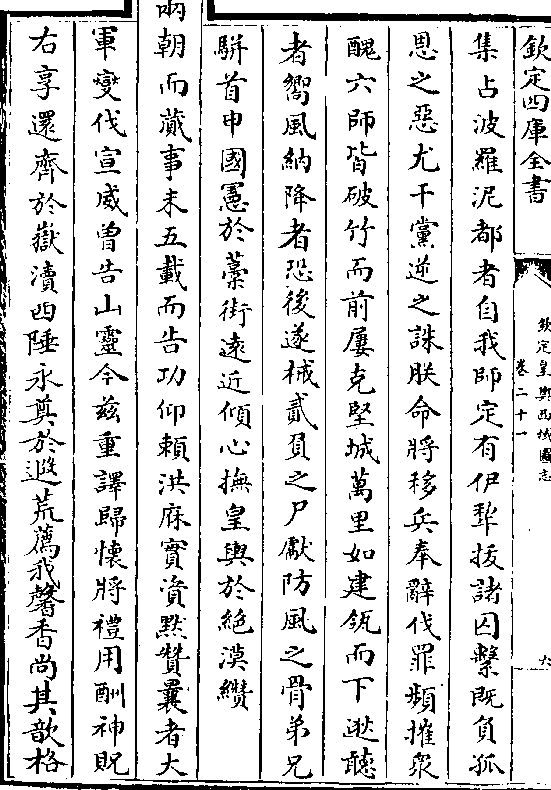 欽定四庫全書
欽定皇輿西域圖志
卷二十一
六
集占波羅泥都者自我師定有伊犂拔諸囚繫既負孤
恩之惡尤干黨逆之誅朕命將移兵奉辭伐罪頻摧衆
醜六師皆破竹而前屢克堅城萬里如建瓴而下逖聽
者嚮風納降者恐後遂械貳負之尸獻防風之骨弟兄
駢首申國憲於藁街遠近傾心撫皇輿於絶漠纘
兩朝而蕆事未五載而告功仰賴洪庥實資黙贊曩者大
軍變伐宣威曾告山靈今兹重譯歸懷將禮用酬神貺
右享還齊於嶽瀆西陲永奠於遐荒薦我馨香尚其歆格